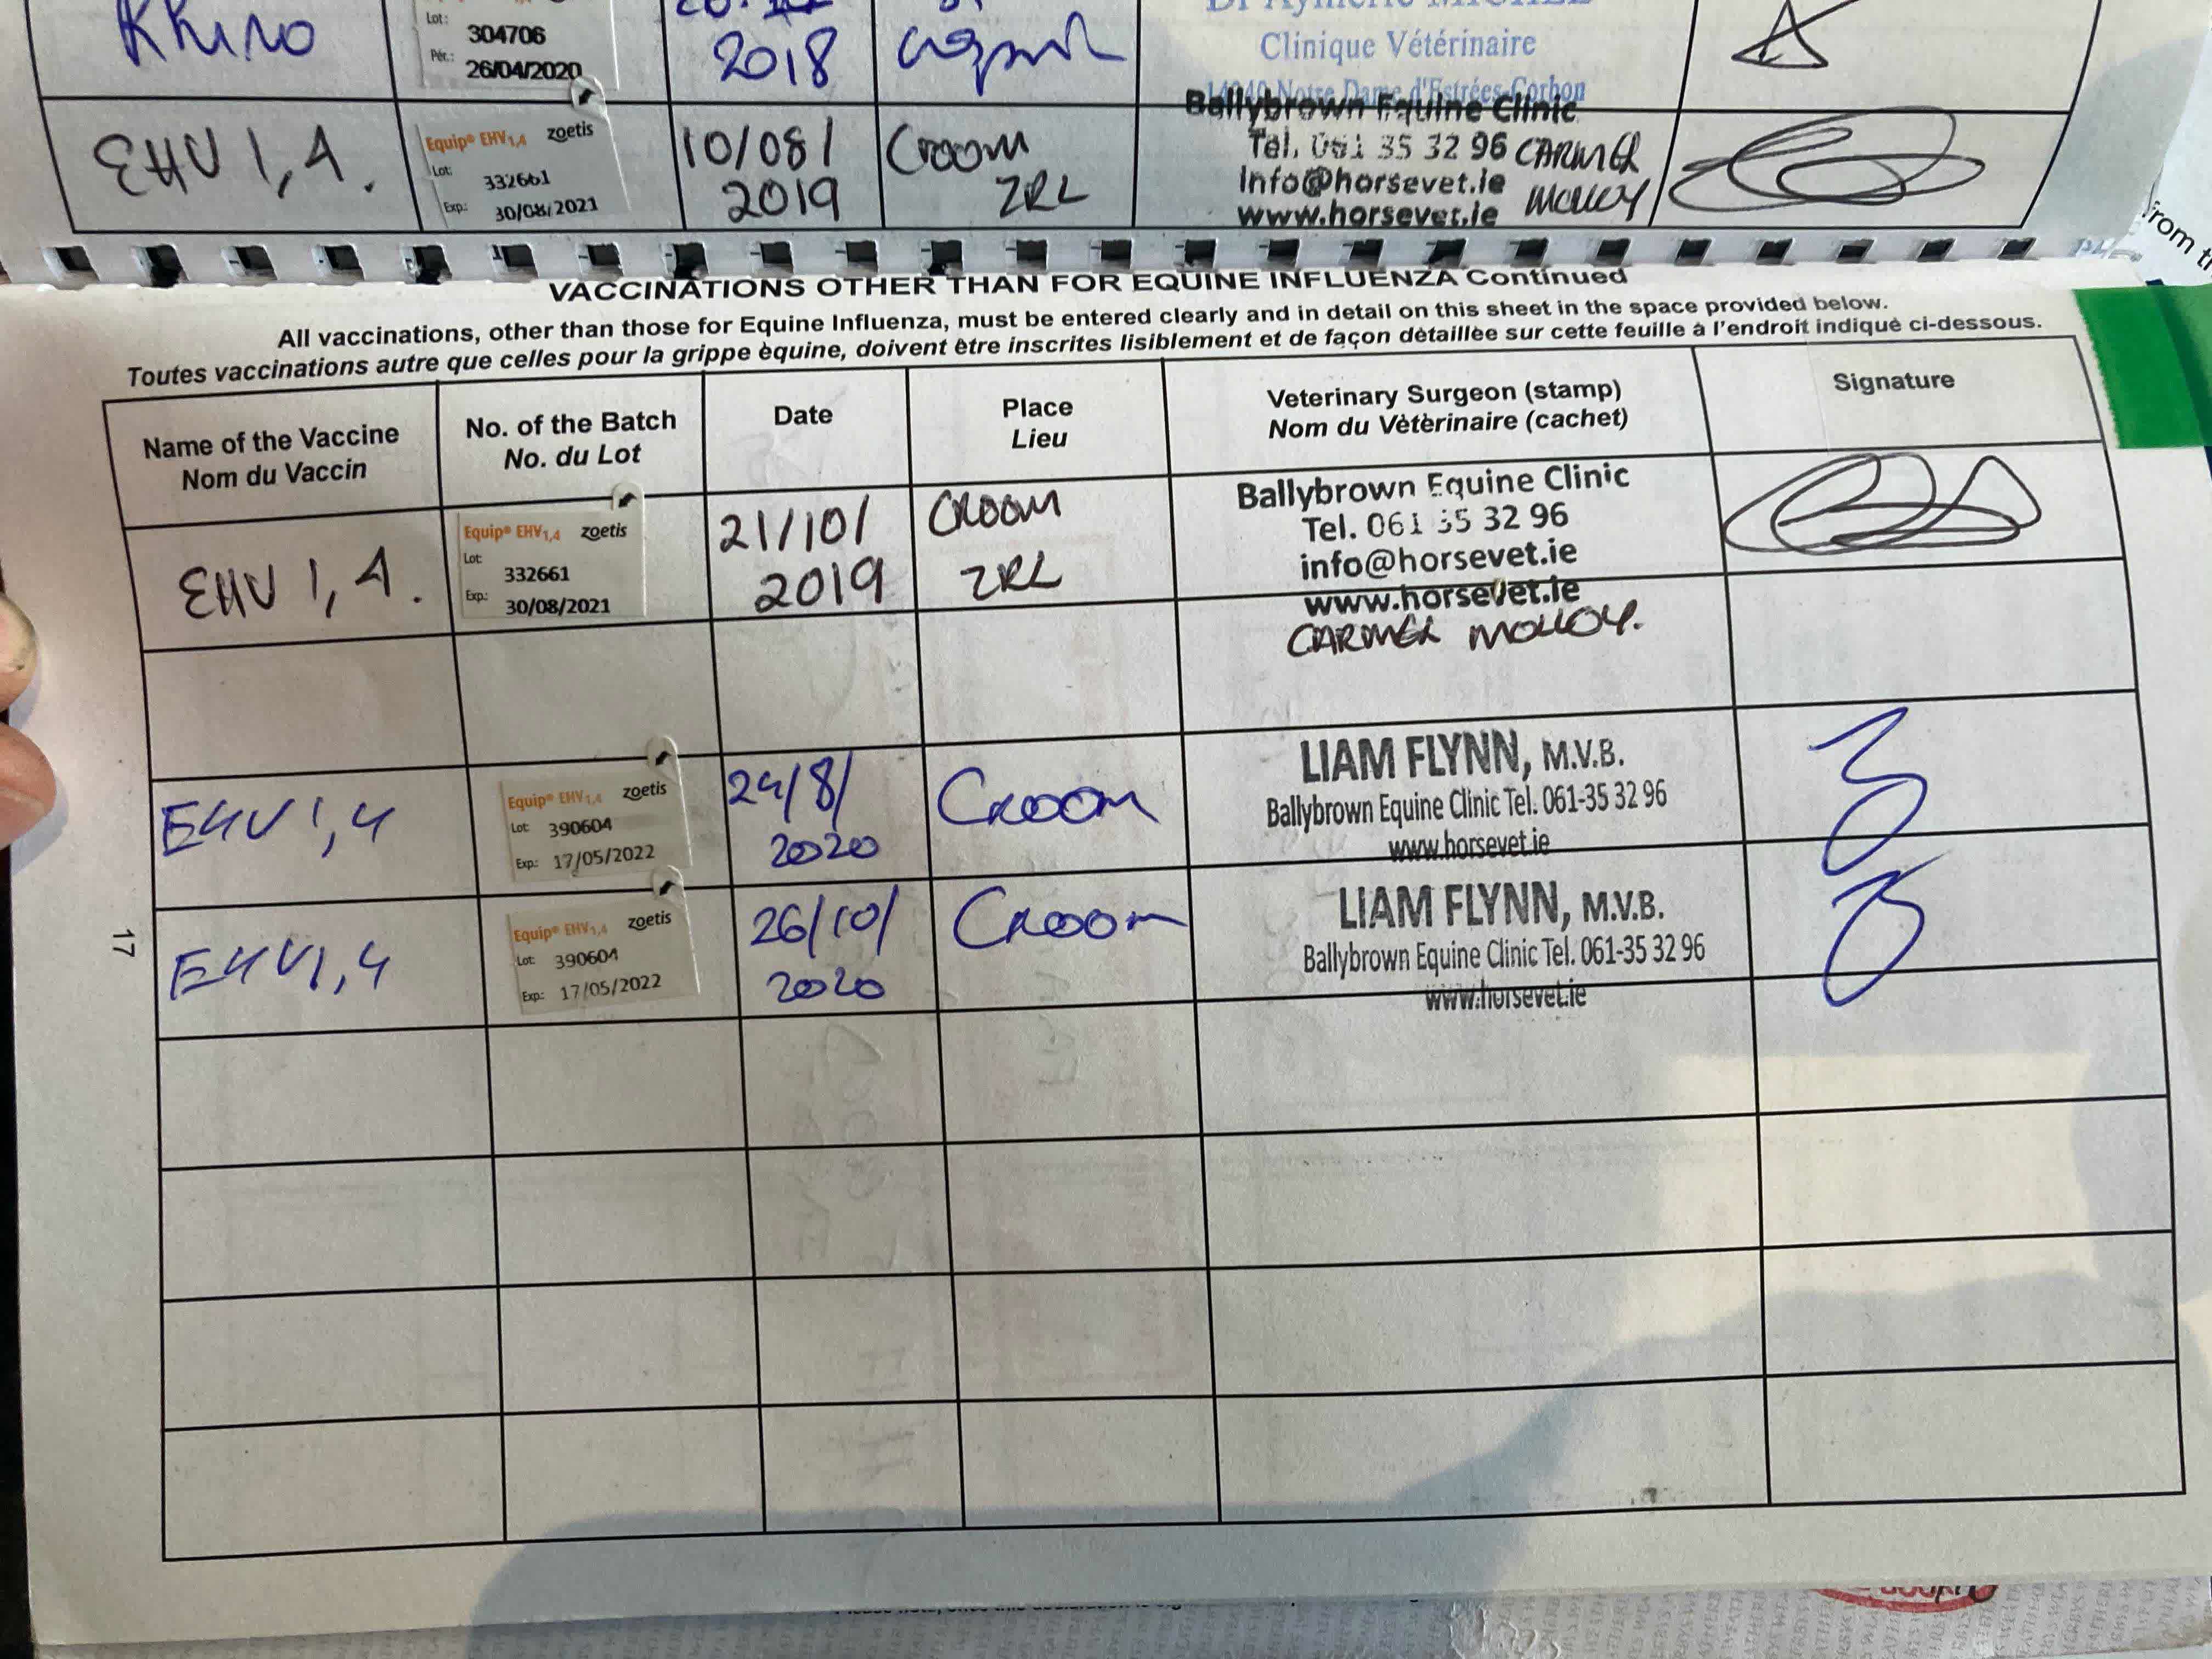 Rhino
Lot: 304706
Pér.: 26/04/2020
2018
Clinique Vétérinaire
14340 Notre Dame d'Estrées-Corbon
EHV 1,4.
Equip® EHV1,4 zoetis
Lot: 332661
Exp: 30/08/2021
10/08/
2019
Croom
IRL
Ballybrown Equine Clinic
Tel. 061 35 32 96 CARMEL
Info@horsevet.ie MOLLOY
www.horsevet.ie
from
VACCINATIONS OTHER THAN FOR EQUINE INFLUENZA Continued
All vaccinations, other than those for Equine Influenza, must be entered clearly and in detail on this sheet in the space provided below.
Toutes vaccinations autre que celles pour la grippe èquine, doivent être inscrites lisiblement et de façon dètaillèe sur cette feuille à l'endroit indiquè ci-dessous.
Name of the Vaccine
Nom du Vaccin
No. of the Batch
No. du Lot
Date
Place
Lieu
Veterinary Surgeon (stamp)
Nom du Vètèrinaire (cachet)
Signature
EHV 1,4.
Equip® EHV1,4 zoetis
Lot: 332661
Exp: 30/08/2021
21/10/
2019
CROOM
IRL
Ballybrown Equine Clinic
Tel. 061 35 32 96
info@horsevet.ie
www.horsevet.ie
CARMEL MOLLOY.
EHV 1,4
Equip® EHV1,4 zoetis
Lot: 390604
Exp: 17/05/2022
24/8/
2020
Croom
LIAM FLYNN, M.V.B.
Ballybrown Equine Clinic Tel. 061-35 32 96
www.horsevet.ie
EHV1,4
Equip® EHV1,4 zoetis
Lot: 390604
Exp: 17/05/2022
26/10/
2020
Croom
LIAM FLYNN, M.V.B.
Ballybrown Equine Clinic Tel. 061-35 32 96
www.horsevet.ie
17